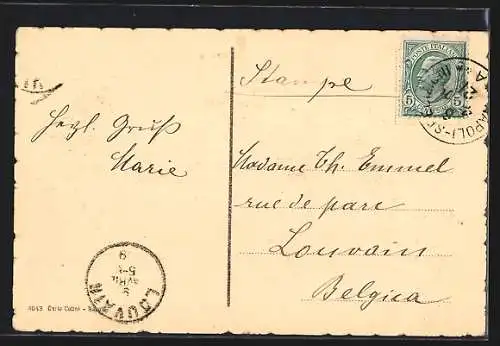 Stampe
POSTE ITALIANE
5 5
NAPOLI
Herzl. Gruß
Marie
Madame Th. Emmel
rue de parc
Louvain
Belgica
LOUVAIN
5
AVRIL
9